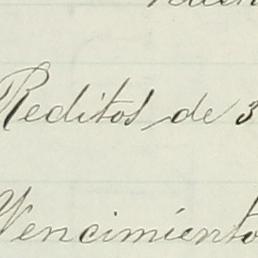 Reditos de 3
Vencimiento